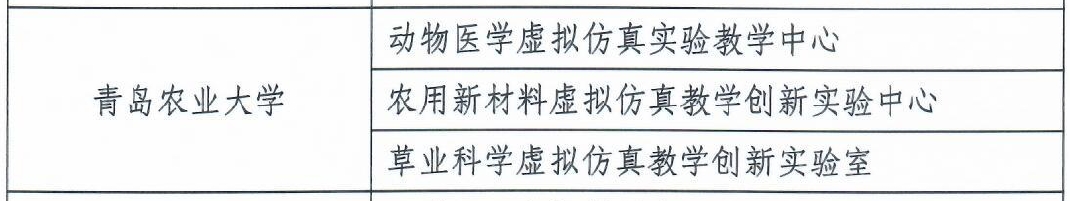 青岛农业大学
动物医学虚拟仿真实验教学中心
农用新材料虚拟仿真教学创新实验中心
草业科学虚拟仿真教学创新实验室